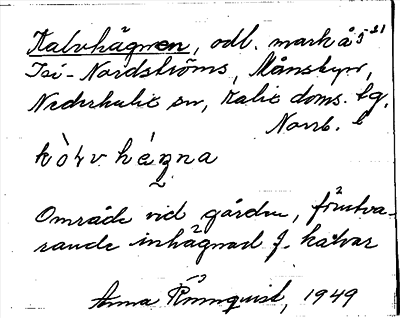 Kalvhägnen, odl. mark å 5²¹
Isi-Nordströms, Månsbyn,
Nederkalix sn, Kalix doms. tg,
Norrb. l
Område vid gården, förutva-
rande inhägnad f. kalvar
Anna Rönnquist, 1949